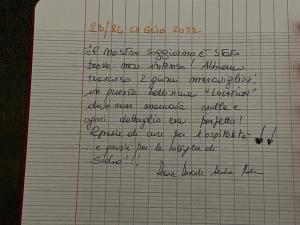 23/24 LUGLIO 2022
Il nostro soggiorno è stato
breve ma intenso! Abbiamo
trascorso 2 giorni meravigliosi
in questa bellissima "LOCATION"
dove non mancava nulla e
ogni dettaglio era perfetto!
Grazie di cuore per l'ospitalità
... e grazie per la bottiglia di